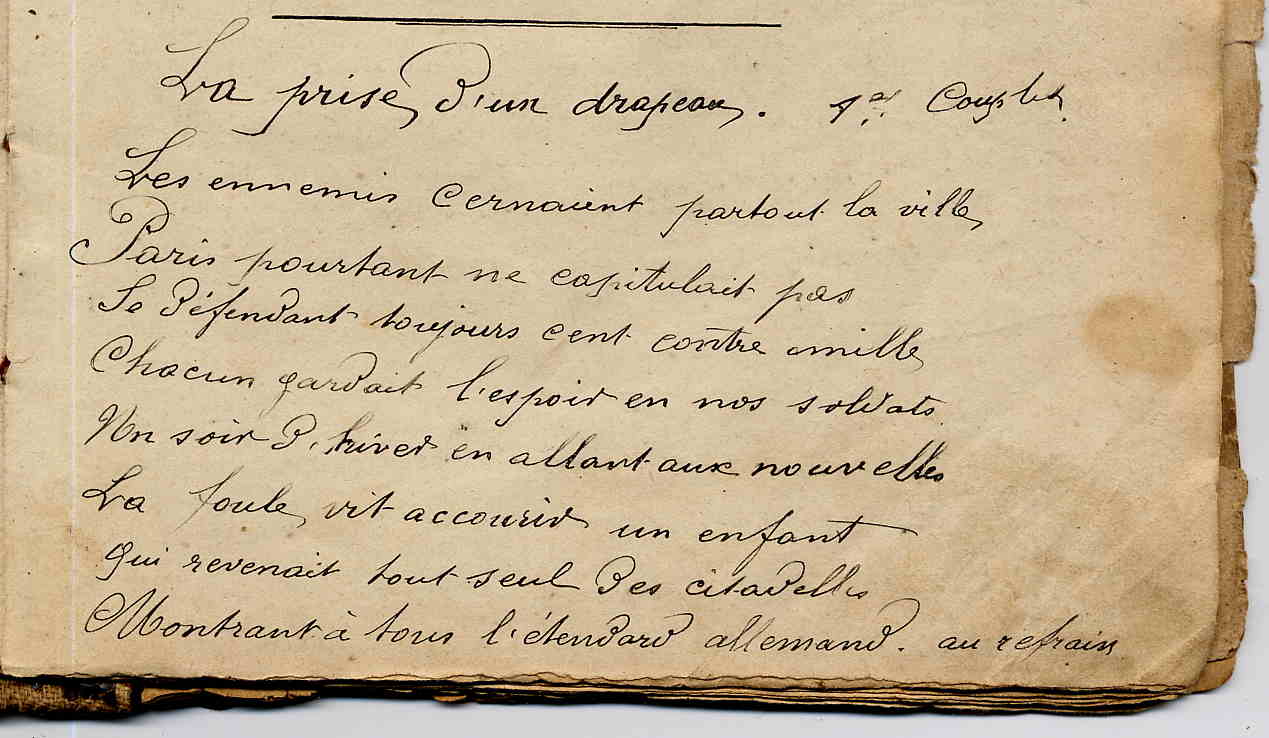 La prise d'un drapeau. 1er Couplet.
Les ennemis cernaient partout la ville
Paris pourtant ne capitulait pas
Se défendant toujours cent contre mille
Chacun gardait l'espoir en nos soldats
Un soir d'hiver en allant aux nouvelles
La foule vit accourir un enfant
Qui revenait tout seul des citadelles
Montrant à tous l'étendard allemand. au refrain